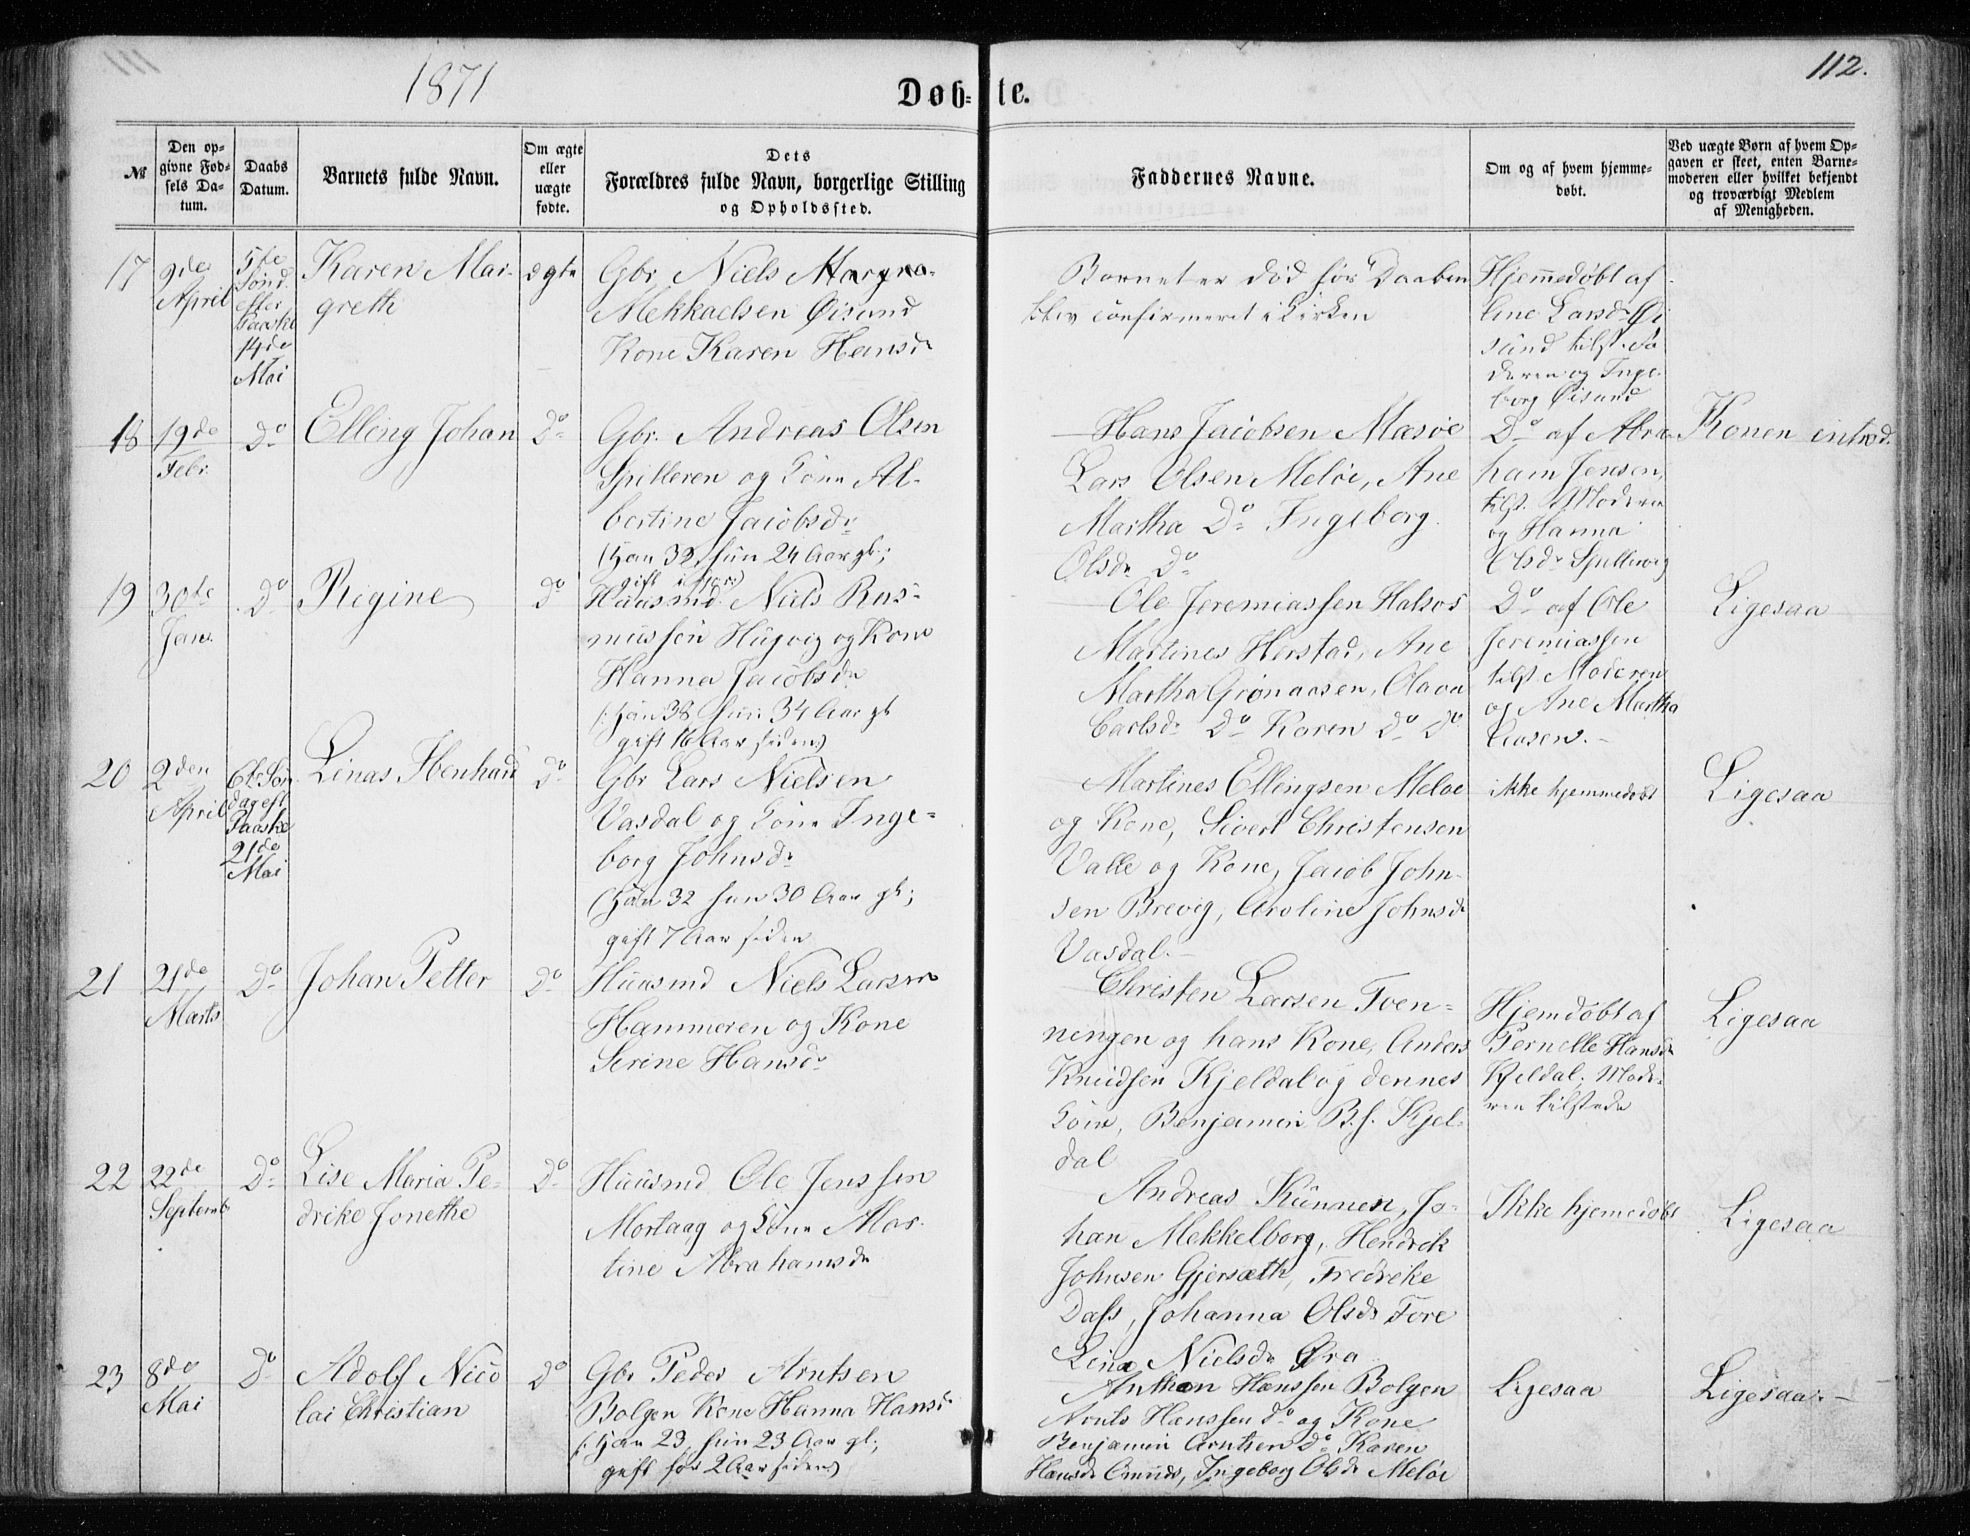 1871
Døb-te.
112.
№
Den opgivne Fødsels Datum.
Daabs Datum.
Barnets fulde Navn.
Om ægte eller uægte fødte.
Dets Forældres fulde Navn, borgerlige Stilling og Opholdssted.
Faddernes Navne.
Om og af hvem hjemmedøbt.
Ved uægte Børn af hvem Opgaven er skeet, enten Barnemoderen eller hvilket bekjendt og troværdigt Medlem af Menigheden.
17
9de
April
5te
Sønd.
efter
Paaske
14de
Mai
Karen Mar-
greth
ægte
Gbr. Niels
Mekkaelsen Øisund
Kone Karen Hansdr
Barnet er død før Daaben
blev confirmeret i Kirken
Hjemmedøbt af
Ane Larsdr Øi
sund tilst. Fa
deren og Inge
borg Øisund
18
19de
Febr.
Do
Elling Johan
Do
Gbr. Andreas Olsen
Spilleren og Kone Al-
bertine Jacobsdr
(Han 32, hun 24 Aar gl.;
gift i
Hans Jacobsen Mæsøe
Lars Olsen Meløe, Ane
Martha Do Ingeborg
Olsdr Do
Do af Abra
ham Jensen,
tilst. Moderen
og Hanna
Olsdr Spillerug
Konen introd.
19
30te
Jan.
Do
Regine
Do
Huusmd. Niels Ras-
mussen Hugvig og Kone
Hanna Jacobsdr
(: Han 38 hun 34 Aar gl.
gift 16 Aar siden)
Ole Jeremiassen Halsos
Martines Herstad, Ane
Martha Grønaasen, Olava
Carlsdr Do Karen Do Do
Do af Ole
Jeremiassen
tilst. Moderen
og Ane Martha
Aasen.-
Ligesaa
20
2den
April
6te Søn
dag eft
Paaske
21de
Mai
Linas Henhard
Do
Gbr Lars Nielsen
Vasdal og Kone Inge-
borg Johnsdr
(Han 32 hun 30 Aar gl.;
gift 7 Aar siden
Martines Ellingsen Meløe
og Kone, Sivert Christensen
Valle og Kone, Jacob John-
sen Brevig, Caroline Johnsdr
Vasdal.-
ikke hjemmedøbt
Ligesaa
21
21de
Marts
Do
Johan Petter
Do
Huusmd Niels Larsen
Hammeren og Kone
Serine Hansdr
Christen Larsen Tven-
ningen og hans Kone, Anders
Knudsen Kjeldal og dennes
Kone, Benjamin B.s. Kjel-
dal
Hjemdøbt af
Pernelle Hansdr
Kjeldal; Mode-
ren tilstede
Ligesaa
22
22de
Septemb
Do
Lise Maria Pe-
drike Jonethe
Do
Huusmd Ole Jenssen
Mortaag og Kone Mar-
tine Abrahamsdr
Andreas Kunnen, Jo-
han Mekkelborg, Hendrik
Johnsen Gjersæth, Fredrike
Dass, Johanna Olsdr Fore
Lina Nielsdr Øra
Ikke hjemedøbt
Ligesaa
23
8de
Mai
Do
Adolf Nico
lai Christian
Do
Gbr Peder Arntsen
Bolgen Kone Hanna Hansdr
(: Han 23, hun 23 Aar gl.;
gift for 2 Aar siden)
Anthon Hanssen Bolgen
Arnts Hanssen do og Kone
Benjamin Arntsen do Karen
Hansdr Ingeborg Olsdr Meløe
Ligesaa
Ligesaa.-